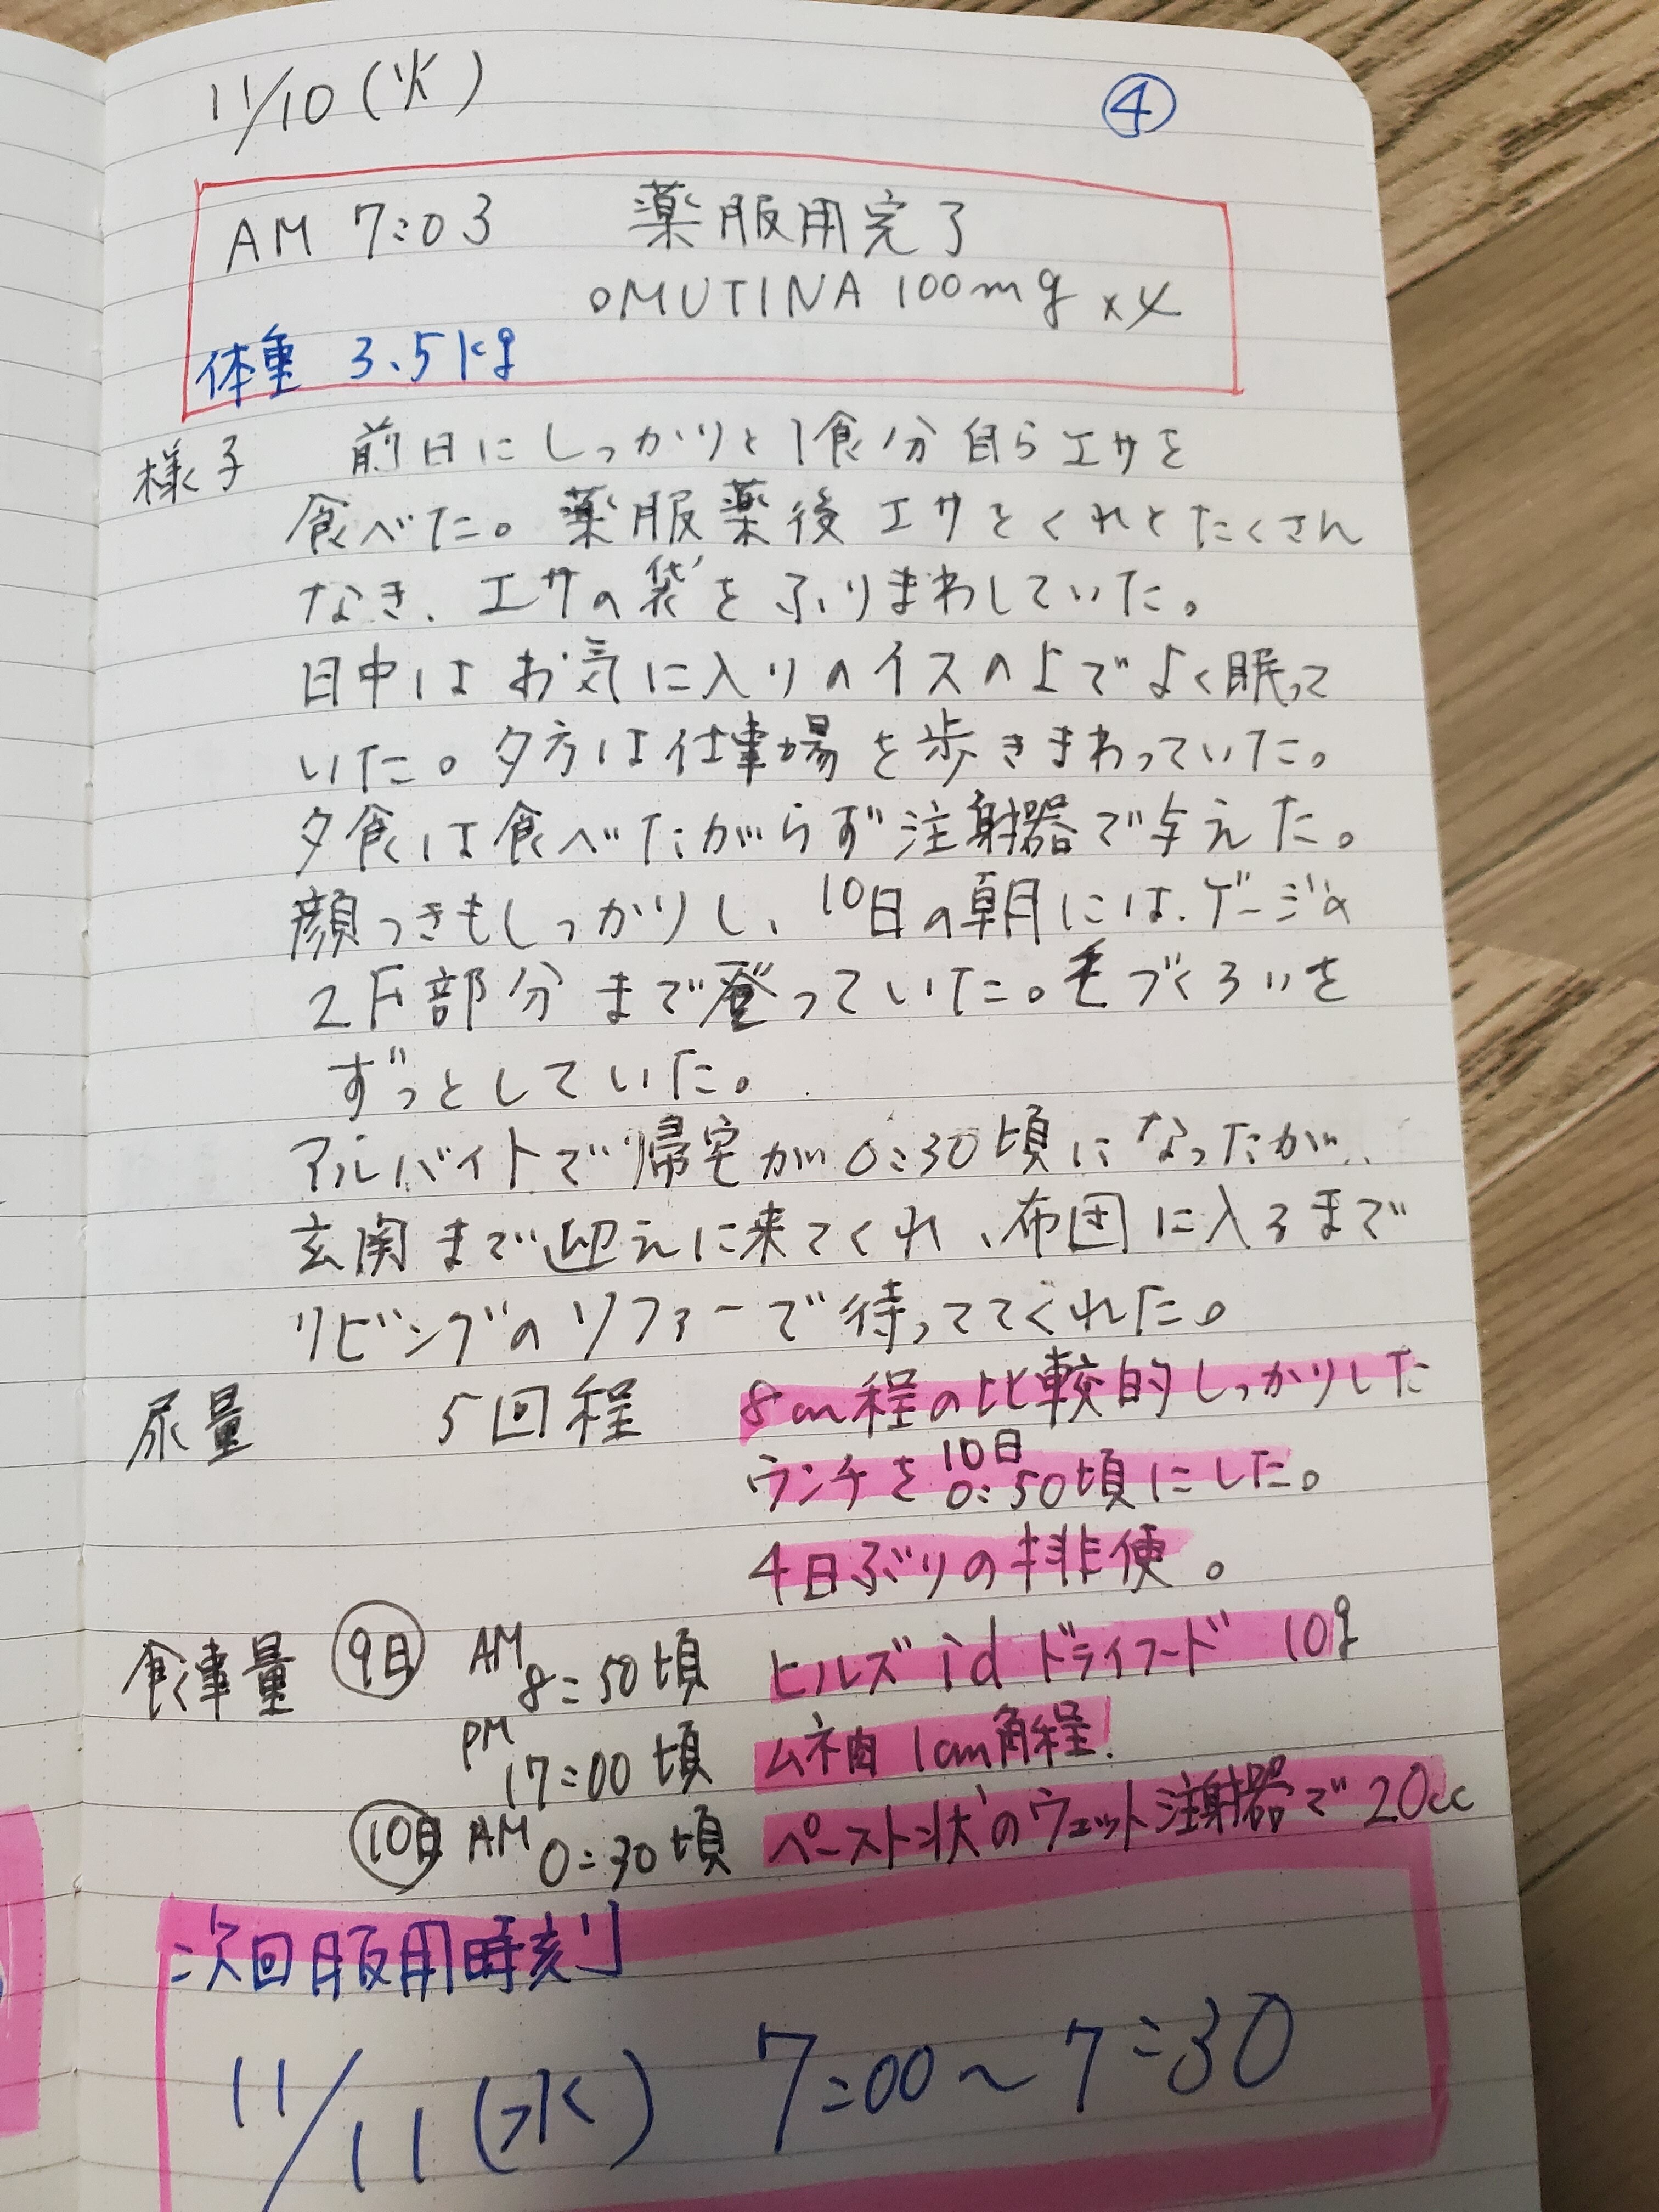 11/10(火) ④
AM 7:03 薬服用完了
○MUTINA 100mg ×4
体重 3.5kg
様子 前日にしっかりと1食分自らエサを
食べた。薬服薬後エサをくれとたくさん
なき、エサの袋をふりまわしていた。
日中はお気に入りのイスの上でよく眠って
いた。夕方は仕事場を歩きまわっていた。
夕食は食べたがらず注射器で与えた。
顔つきもしっかりし、10日の朝には、ゲージの
2F部分まで登っていた。毛づくろいを
ずっとしていた。
アルバイトで帰宅が0:30頃になったが、
玄関まで迎えに来てくれ、布団に入るまで
リビングのソファーで待っててくれた。
尿量 5回程 8cm程の比較的しっかりした
ウンチを10日0:50頃にした。
4日ぶりの排便。
食事量 9日 AM 8:50頃 ヒルズ id ドライフード 10g
PM 17:00頃 ムネ肉 1cm角程.
10日 AM 0:30頃 ペースト状のウェット注射器で20cc
次回服用時刻
11/11(水) 7:00〜7:30